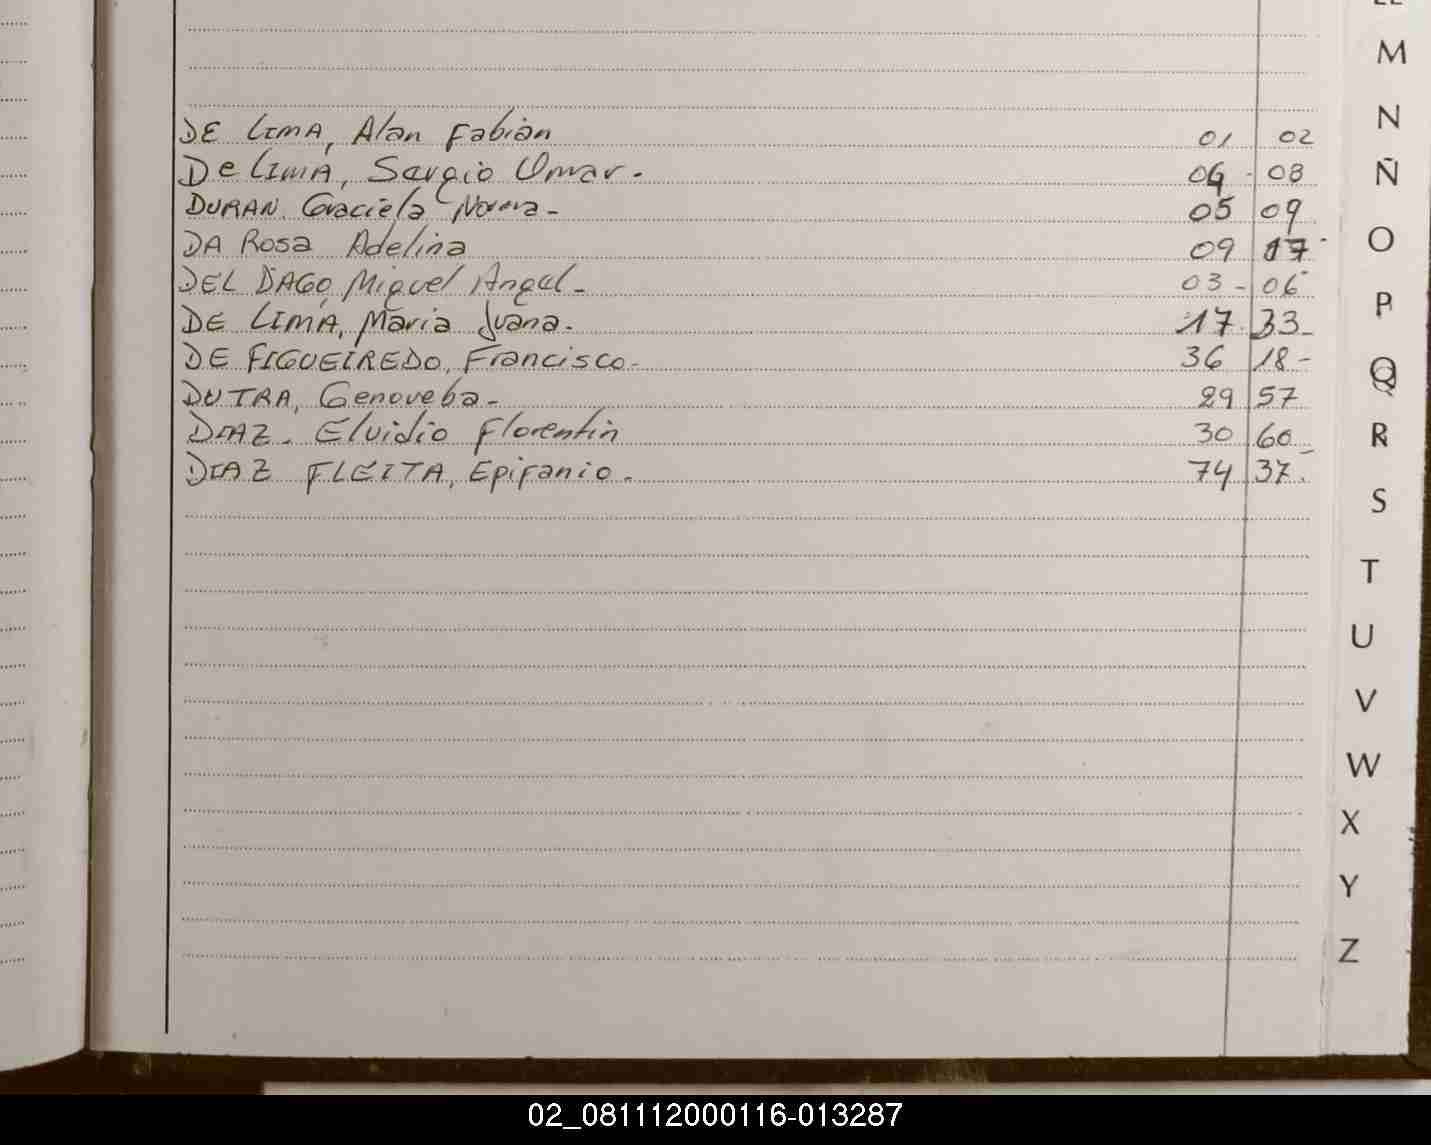 DE LIMA, Alan Fabián 01 02
De LIMA, Sergio Omar. 04 - 08
DURAN. Graciela Norma- 05 09
DA ROSA Adelina 09 17
DEL DAGO, Miguel Angel- 03 - 06
DE LIMA, María Juana. 17. 33-
DE FIGUEIREDO, Francisco- 36 18-
DUTRA, Genoveba- 29 57
DIAZ. Eluidio Florentín 30 60
DIAZ FLEITA, Epifanio. 74 37.
M
N
Ñ
O
P
Q
R
S
T
U
V
W
X
Y
Z
02_081112000116-013287